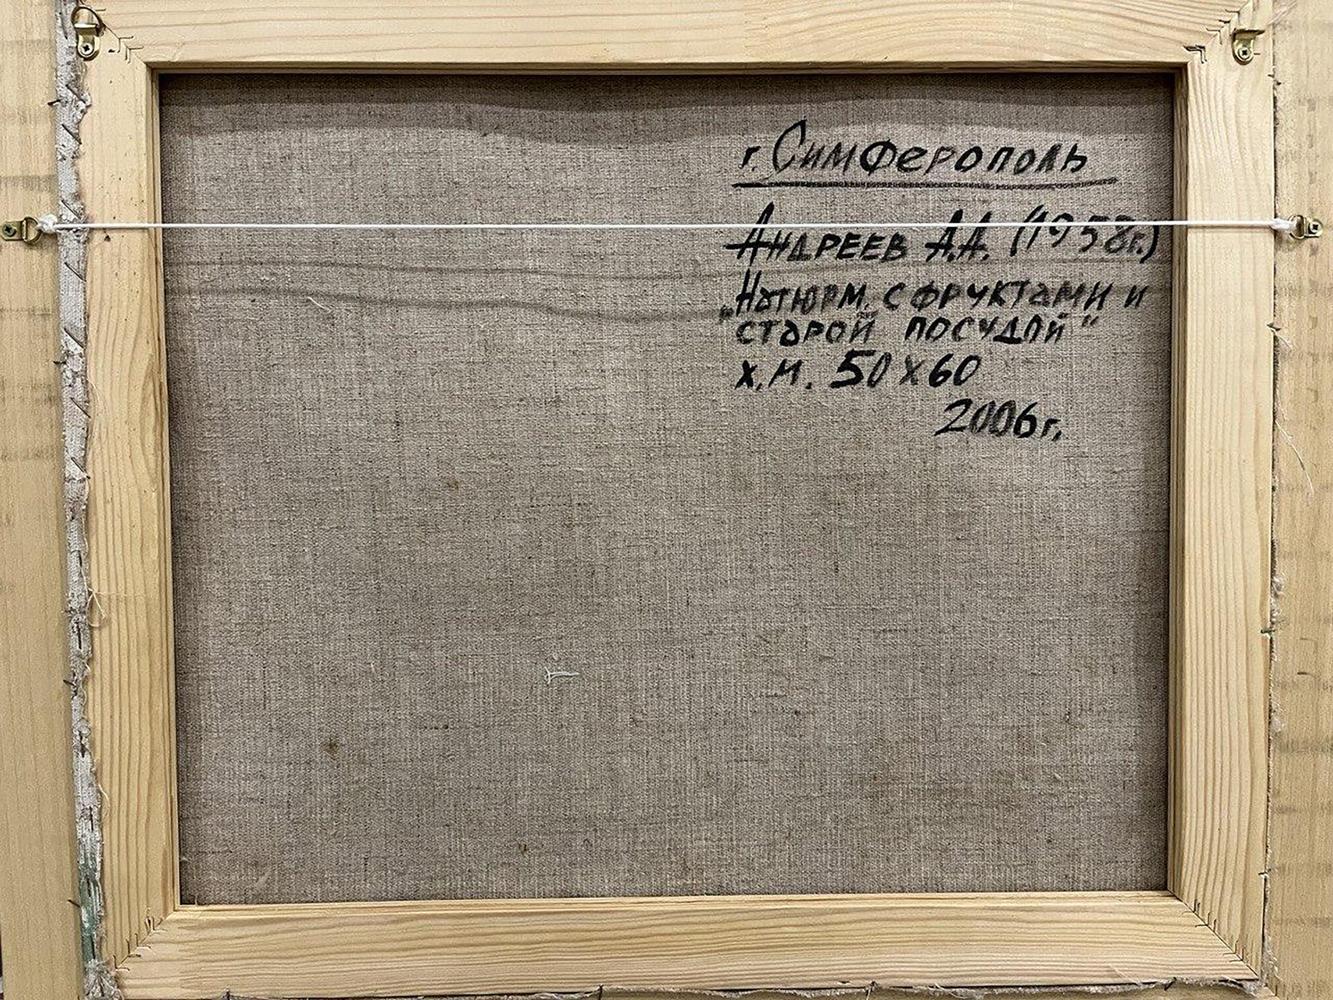 г. Симферополь
Андреев А.А. (1958г.)
„Натюрм. с фруктами и
старой посудой"
х.м. 50х60
2006г.